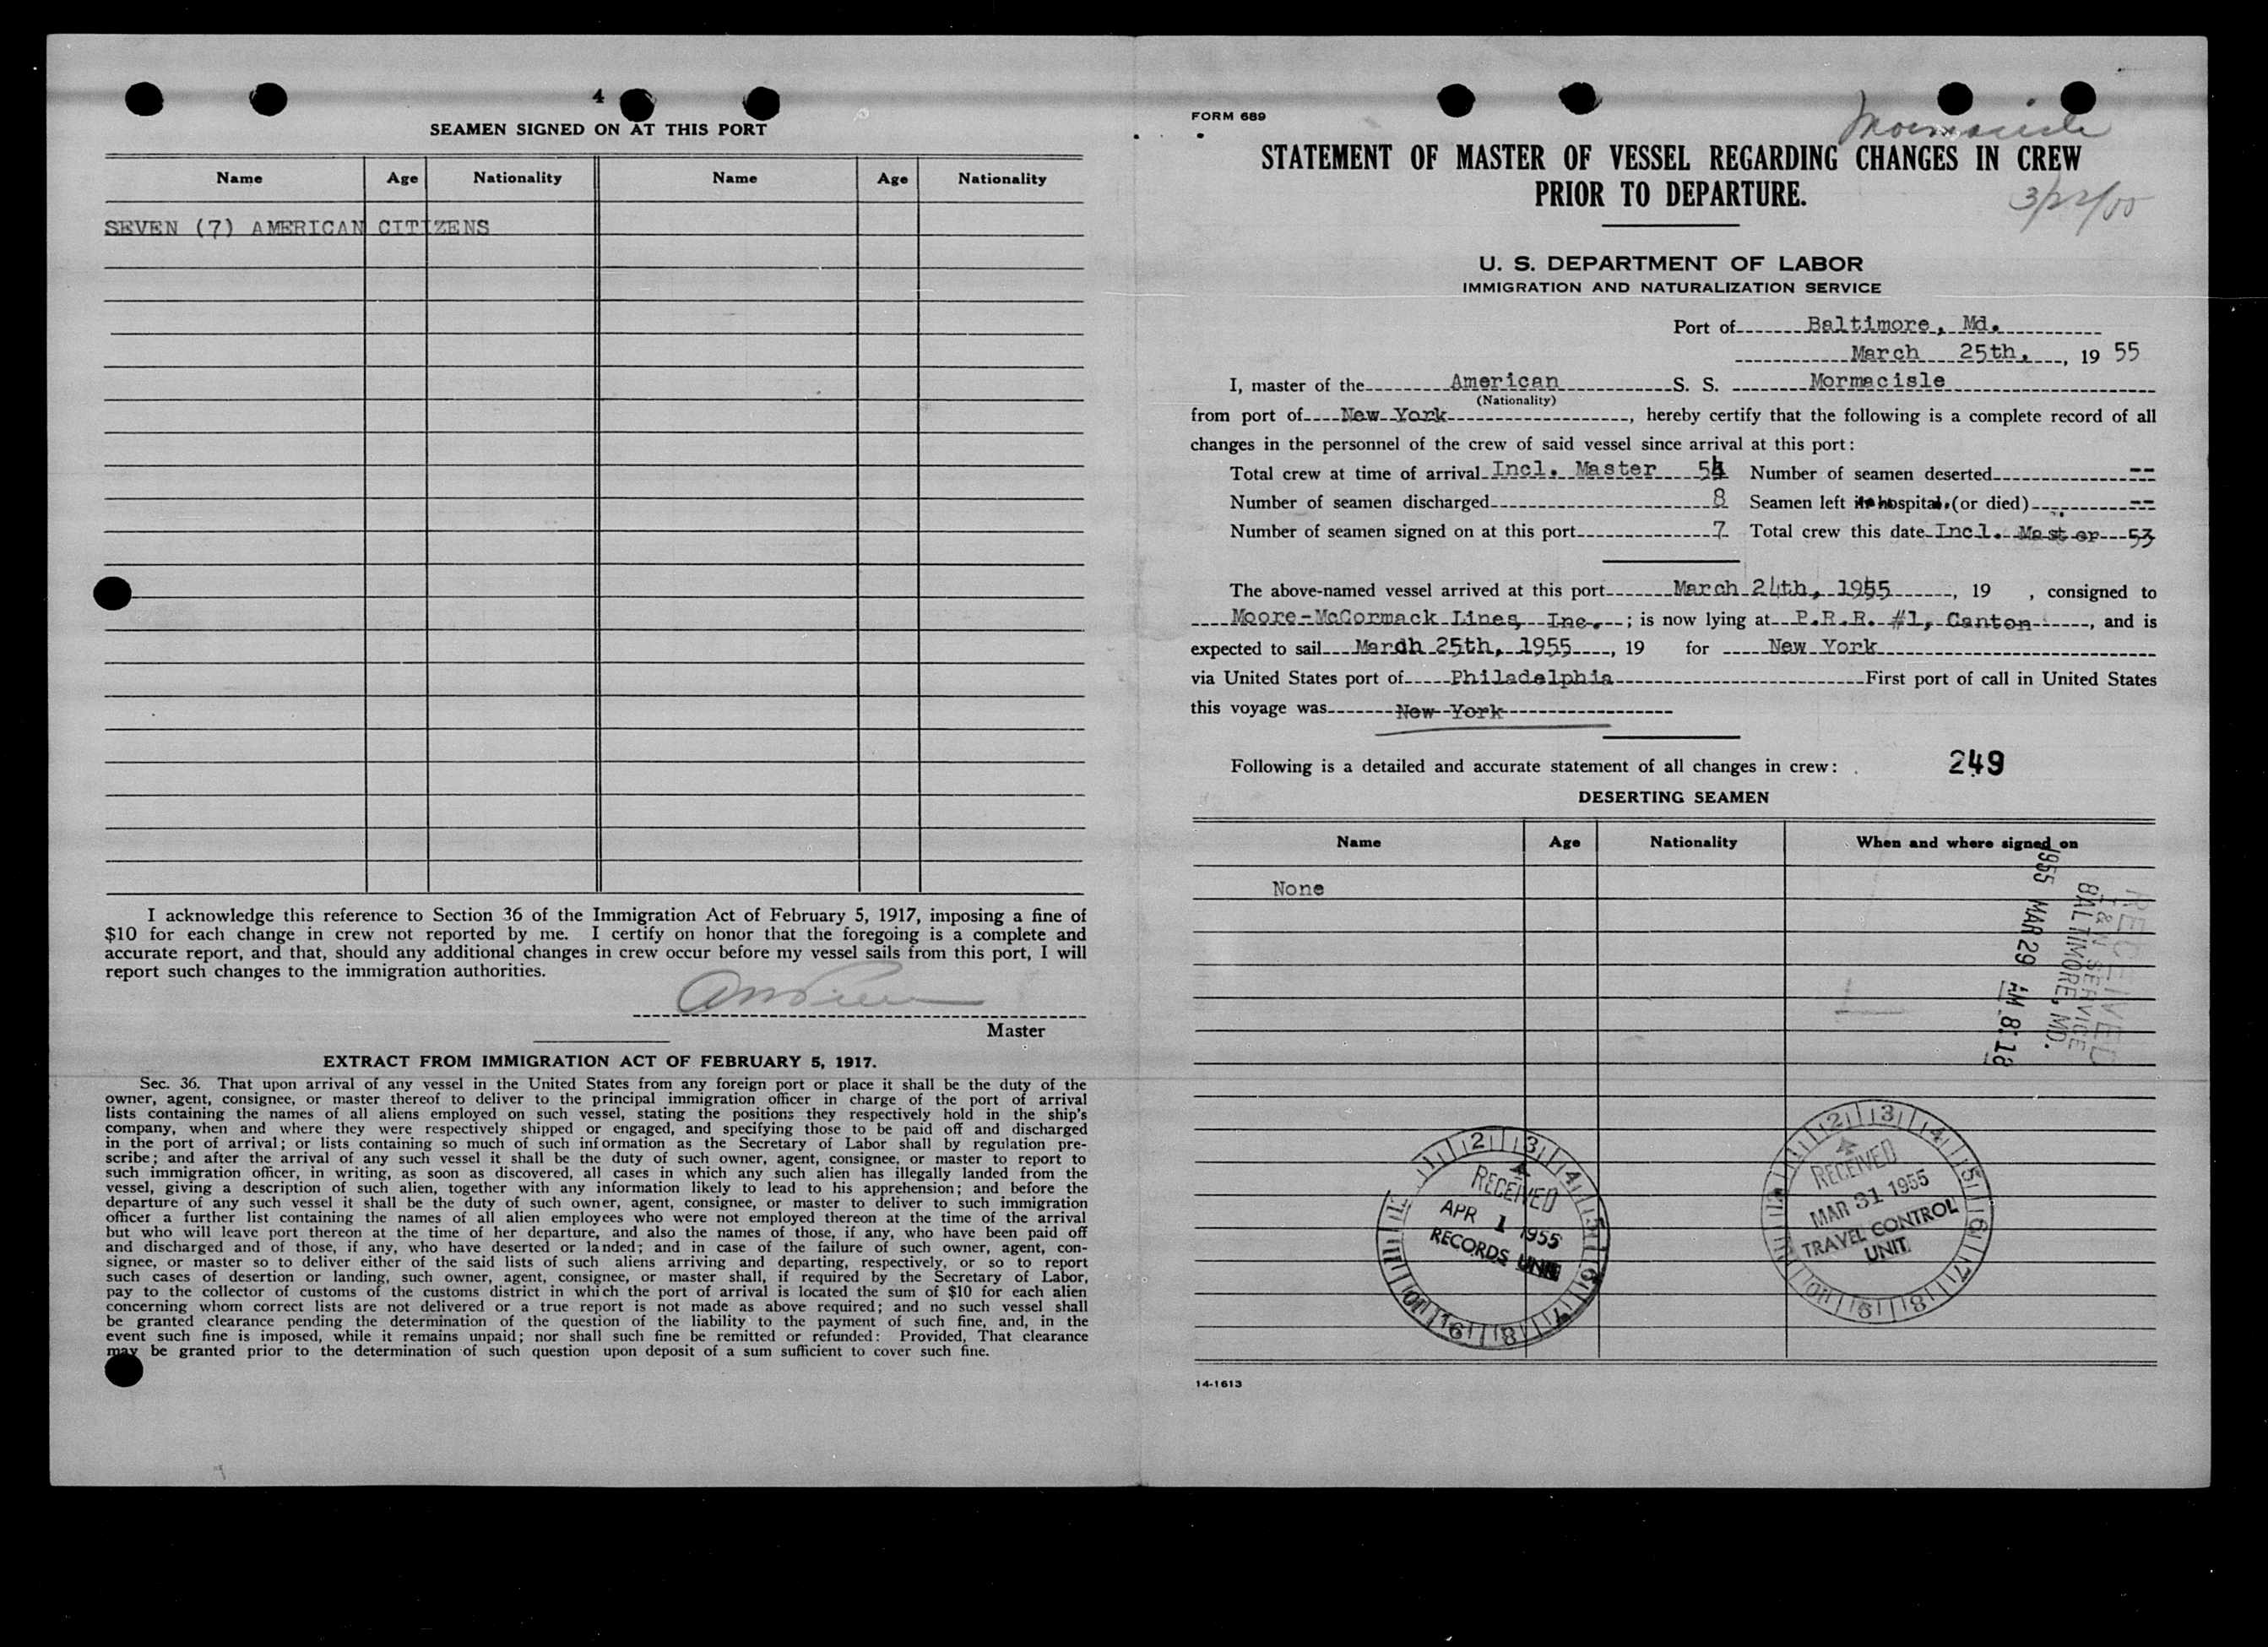 4
SEAMEN SIGNED ON AT THIS PORT
Name Age Nationality Name Age Nationality
SEVEN (7) AMERICAN CITIZENS
I acknowledge this reference to Section 36 of the Immigration Act of February 5, 1917, imposing a fine of
$10 for each change in crew not reported by me. I certify on honor that the foregoing is a complete and
accurate report, and that, should any additional changes in crew occur before my vessel sails from this port, I will
report such changes to the immigration authorities.
Master
EXTRACT FROM IMMIGRATION ACT OF FEBRUARY 5, 1917.
Sec. 36. That upon arrival of any vessel in the United States from any foreign port or place it shall be the duty of the
owner, agent, consignee, or master thereof to deliver to the principal immigration officer in charge of the port of arrival
lists containing the names of all aliens employed on such vessel, stating the positions they respectively hold in the ship's
company, when and where they were respectively shipped or engaged, and specifying those to be paid off and discharged
in the port of arrival; or lists containing so much of such information as the Secretary of Labor shall by regulation pre-
scribe; and after the arrival of any such vessel it shall be the duty of such owner, agent, consignee, or master to report to
such immigration officer, in writing, as soon as discovered, all cases in which any such alien has illegally landed from the
vessel, giving a description of such alien, together with any information likely to lead to his apprehension; and before the
departure of any such vessel it shall be the duty of such owner, agent, consignee, or master to deliver to such immigration
officer a further list containing the names of all alien employees who were not employed thereon at the time of the arrival
but who will leave port thereon at the time of her departure, and also the names of those, if any, who have been paid off
and discharged and of those, if any, who have deserted or landed; and in case of the failure of such owner, agent, con-
signee, or master so to deliver either of the said lists of such aliens arriving and departing, respectively, or so to report
such cases of desertion or landing, such owner, agent, consignee, or master shall, if required by the Secretary of Labor,
pay to the collector of customs of the customs district in which the port of arrival is located the sum of $10 for each alien
concerning whom correct lists are not delivered or a true report is not made as above required; and no such vessel shall
be granted clearance pending the determination of the question of the liability to the payment of such fine, and, in the
event such fine is imposed, while it remains unpaid; nor shall such fine be remitted or refunded: Provided, That clearance
may be granted prior to the determination of such question upon deposit of a sum sufficient to cover such fine.
FORM 689
Mormacisle
STATEMENT OF MASTER OF VESSEL REGARDING CHANGES IN CREW
PRIOR TO DEPARTURE.
U. S. DEPARTMENT OF LABOR
IMMIGRATION AND NATURALIZATION SERVICE
Port of Baltimore, Md.
March 25th, , 19 55
I, master of the American S. S. Mormacisle
(Nationality)
from port of New York , hereby certify that the following is a complete record of all
changes in the personnel of the crew of said vessel since arrival at this port:
Total crew at time of arrival Incl. Master 54 Number of seamen deserted --
Number of seamen discharged 8 Seamen left in hospital, (or died) --
Number of seamen signed on at this port 7 Total crew this date Incl. Master 53
The above-named vessel arrived at this port March 24th, 1955 , 19 , consigned to
Moore-McCormack Lines, Inc. ; is now lying at P.R.R. #1, Canton , and is
expected to sail March 25th, 1955 , 19 for New York
via United States port of Philadelphia First port of call in United States
this voyage was New York
Following is a detailed and accurate statement of all changes in crew:
249
DESERTING SEAMEN
Name Age Nationality When and where signed on
None
RECEIVED
I & N SERVICE
BALTIMORE, MD.
1955 MAR 29 AM 8:18
RECEIVED
APR 1 1955
RECORDS UNIT
RECEIVED
MAR 31 1955
TRAVEL CONTROL
UNIT
14-1613